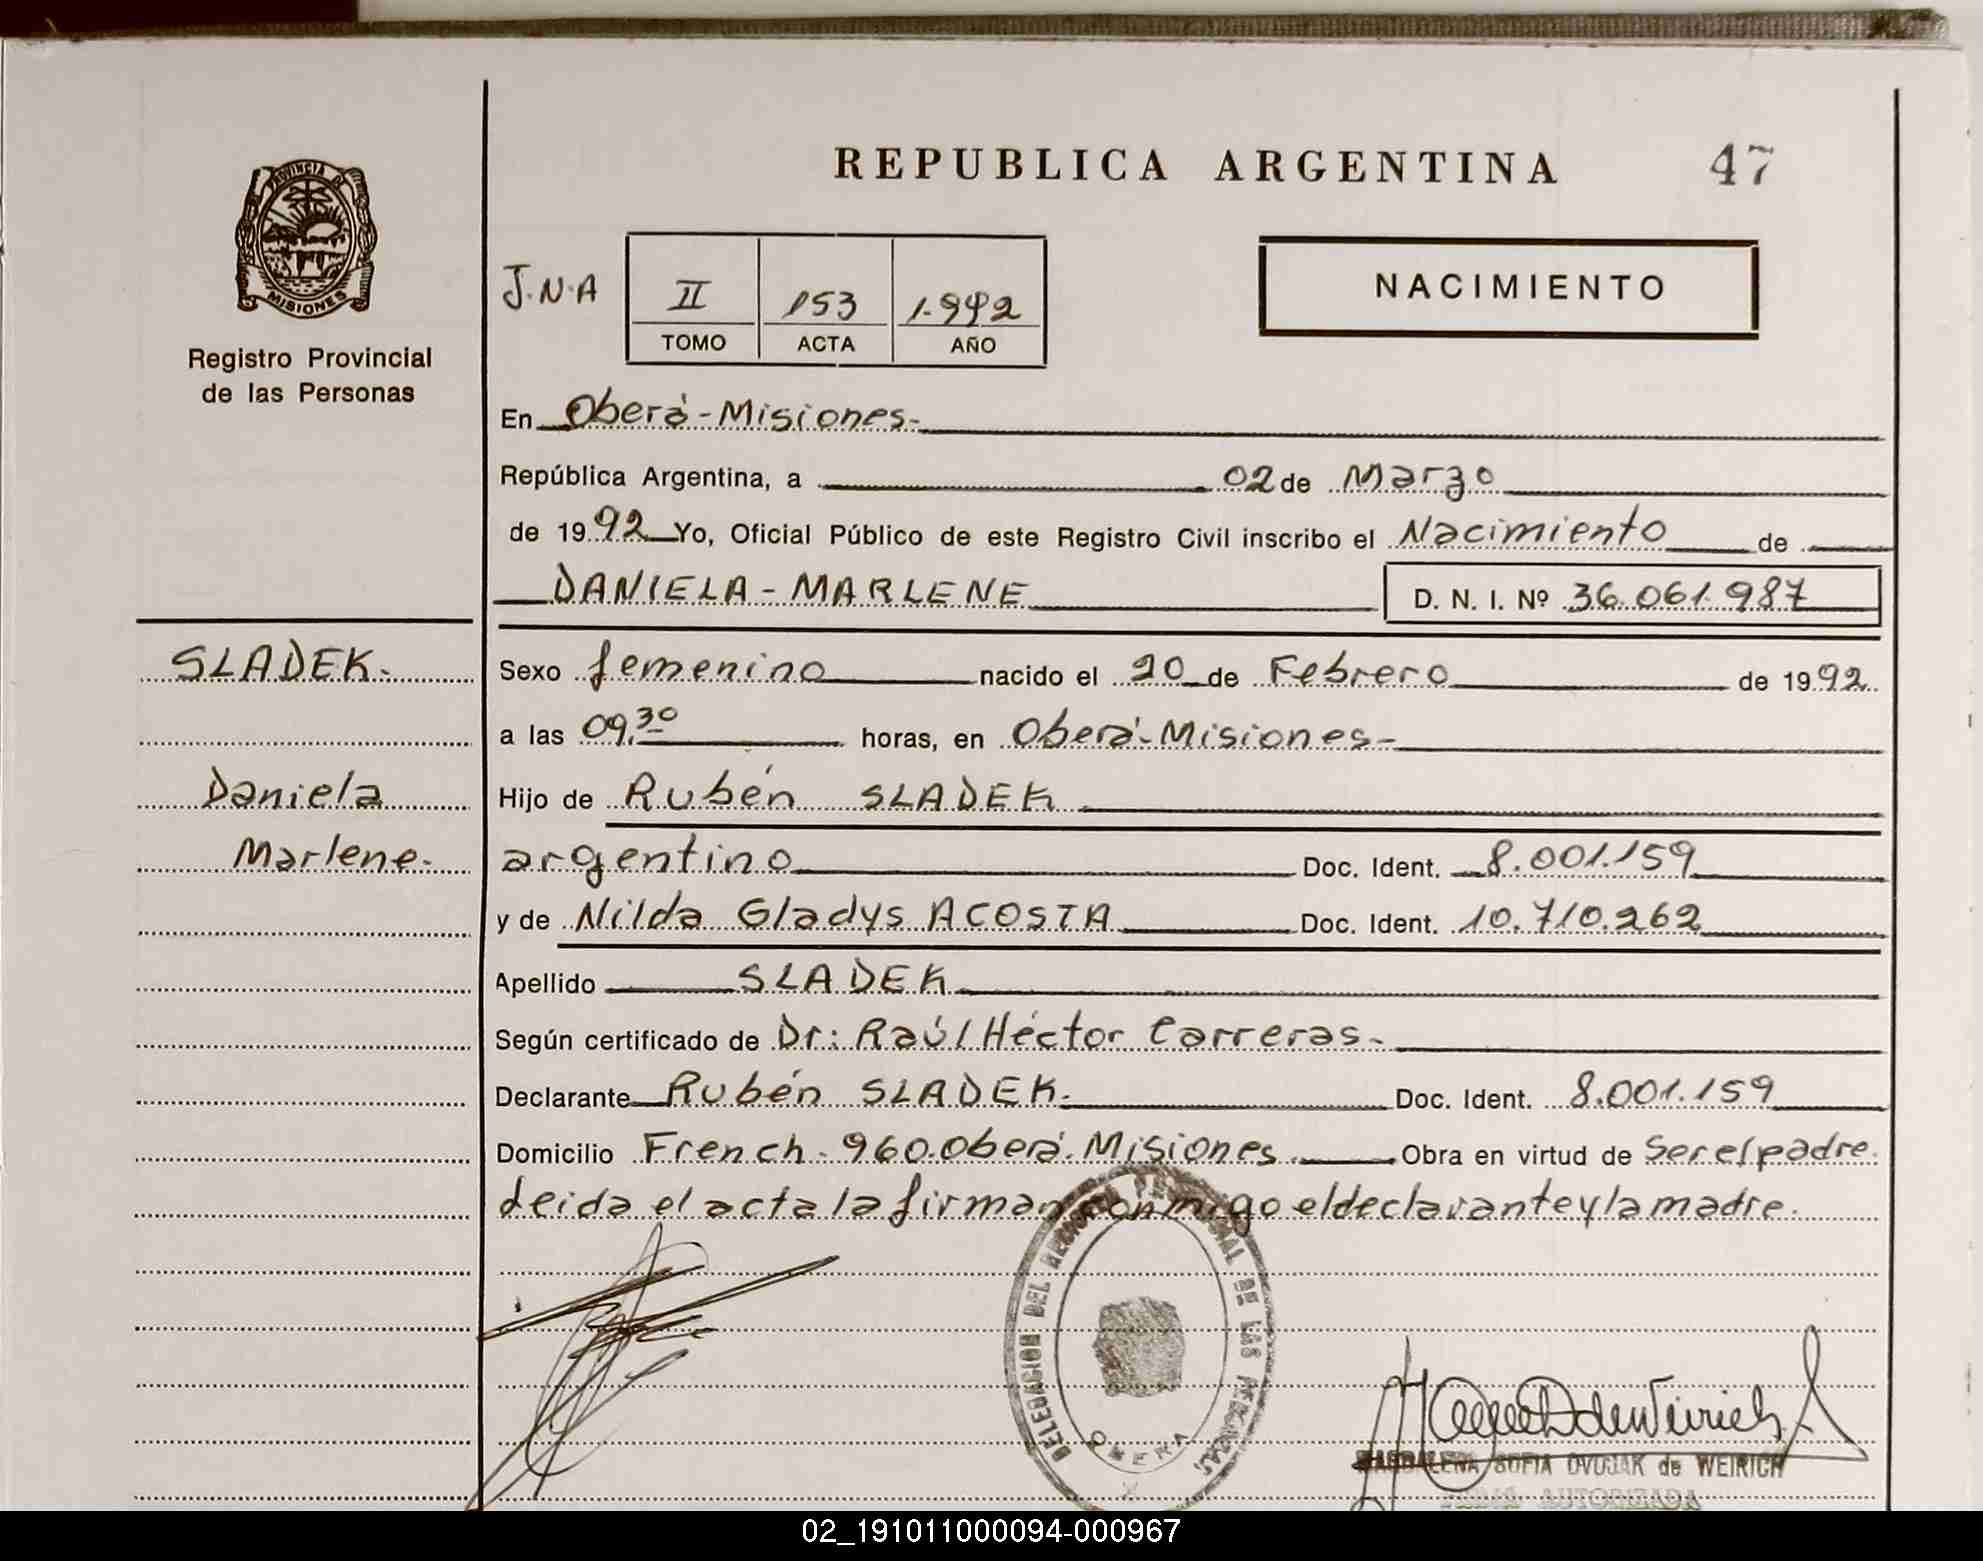 REPUBLICA ARGENTINA
47
PROVINCIA DE
MISIONES
Registro Provincial
de las Personas
J.N.A
II 153 1.992
TOMO ACTA AÑO
NACIMIENTO
En Oberá-Misiones-
República Argentina, a 02 de Marzo
de 1992 Yo, Oficial Público de este Registro Civil inscribo el Nacimiento de
DANIELA-MARLENE D. N. I. Nº 36.061.987
SLADEK.
Daniela
Marlene.
Sexo femenino nacido el 20 de Febrero de 1992
a las 09,30 horas, en Oberá-Misiones-
Hijo de Rubén SLADEK
argentino Doc. Ident. 8.001.159
y de Nilda Gladys ACOSTA Doc. Ident. 10.710.262
Apellido SLADEK
Según certificado de Dr: Raúl Héctor Carreras-
Declarante Rubén SLADEK. Doc. Ident. 8.001.159
Domicilio French-960.Oberá.Misiones. Obra en virtud de Ser el padre.
Leida el acta la firman conmigo el declarante y la madre.
DELEGACION DEL REGISTRO PROVINCIAL DE LAS PERSONAS
OBERA
MAGDALENA SOFIA OVUJAK de WEIRICH
02_191011000094-000967